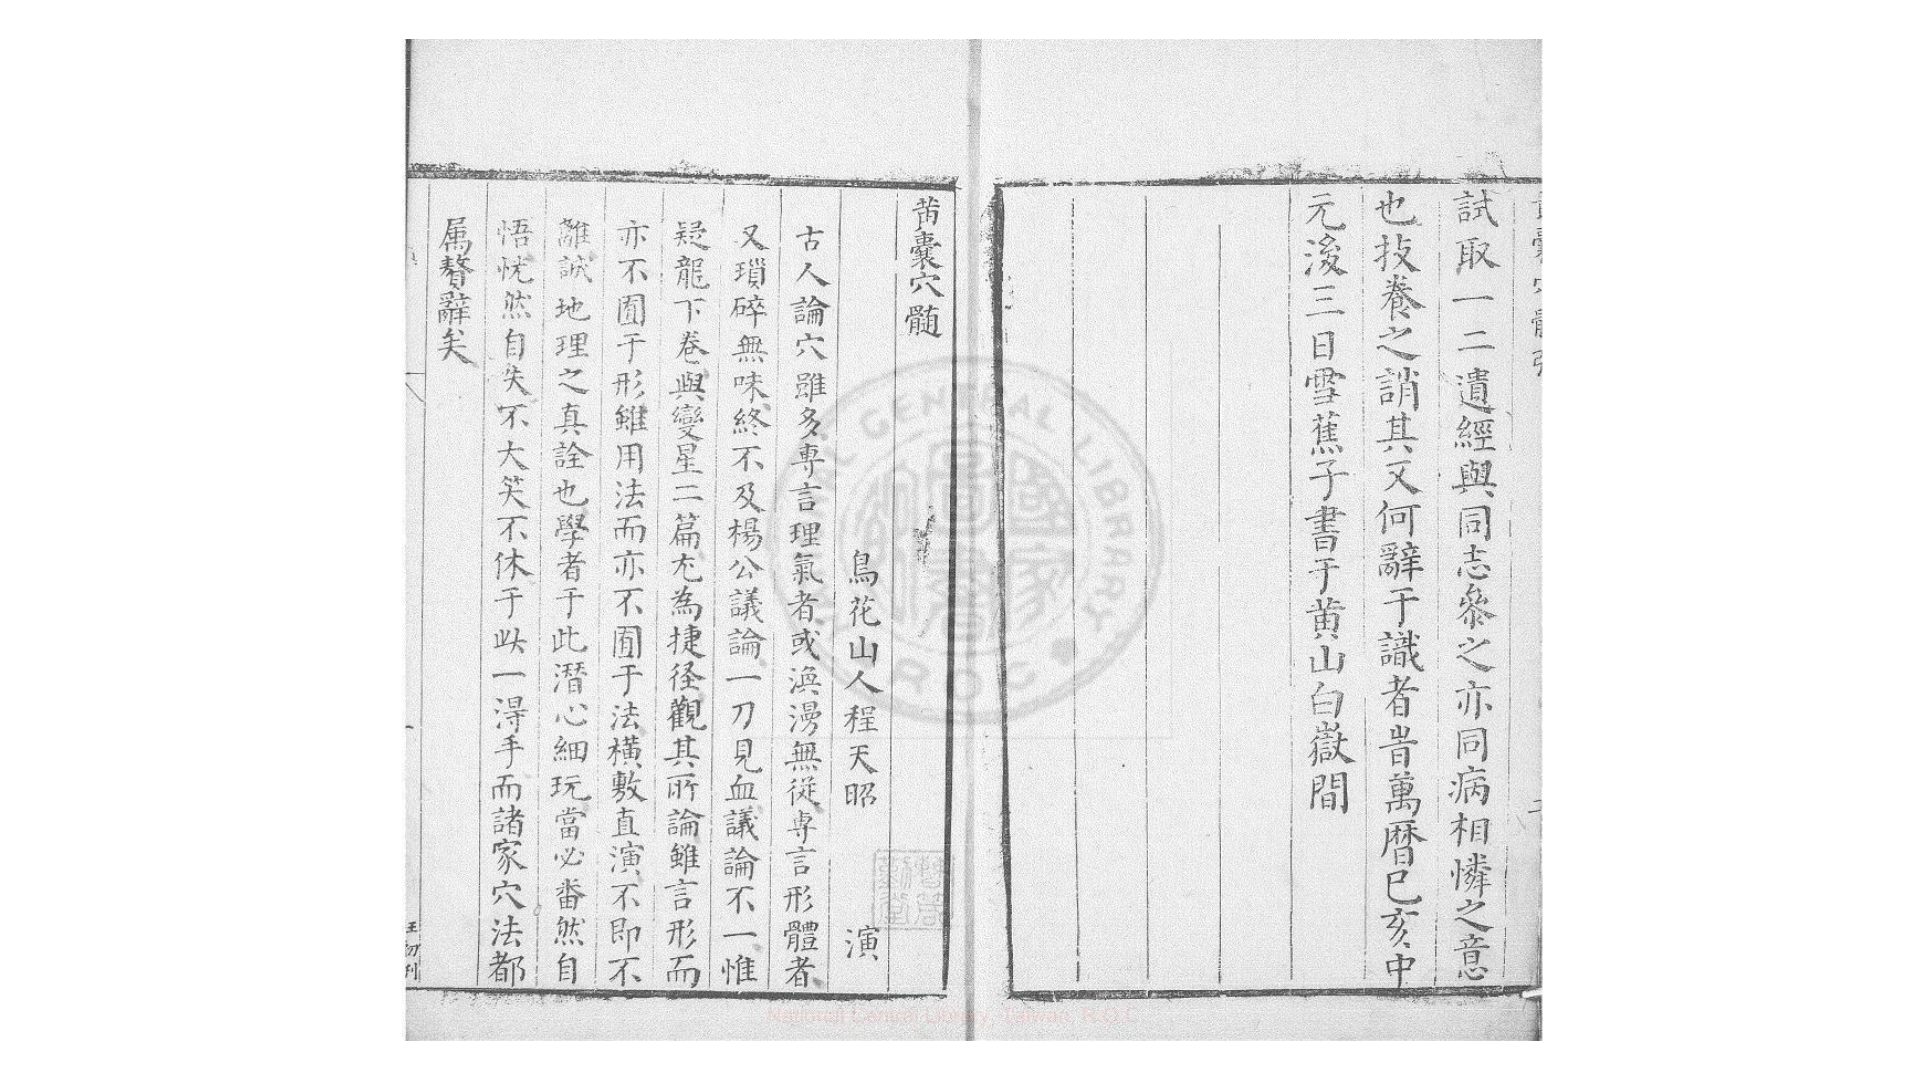 試取一二遺經與同志叅之亦同病相憐之意
也技養之誚其又何辭于識者旹萬暦巳亥中
元後三日雪蕉子書于黄山白嶽間
黄囊穴髄
鳥花山人程天昭 演
古人論穴雖多專言理氣者或渙漫無從専言形體者
又瑣碎無味終不及楊公議論一刀見血議論不一惟
疑龍下卷與變星二篇尤為捷径觀其所論雖言形而
亦不囿于形雖用法而亦不囿于法横敷直演不即不
離誠地理之真詮也學者于此潛心細玩當必畨然自
悟恍然自失不大笑不休于此一得手而諸家穴法都
属贅辭矣
王初刊
NATIONAL CENTRAL LIBRARY R O C
國家圖書館
National Central Library, Taiwan, R.O.C